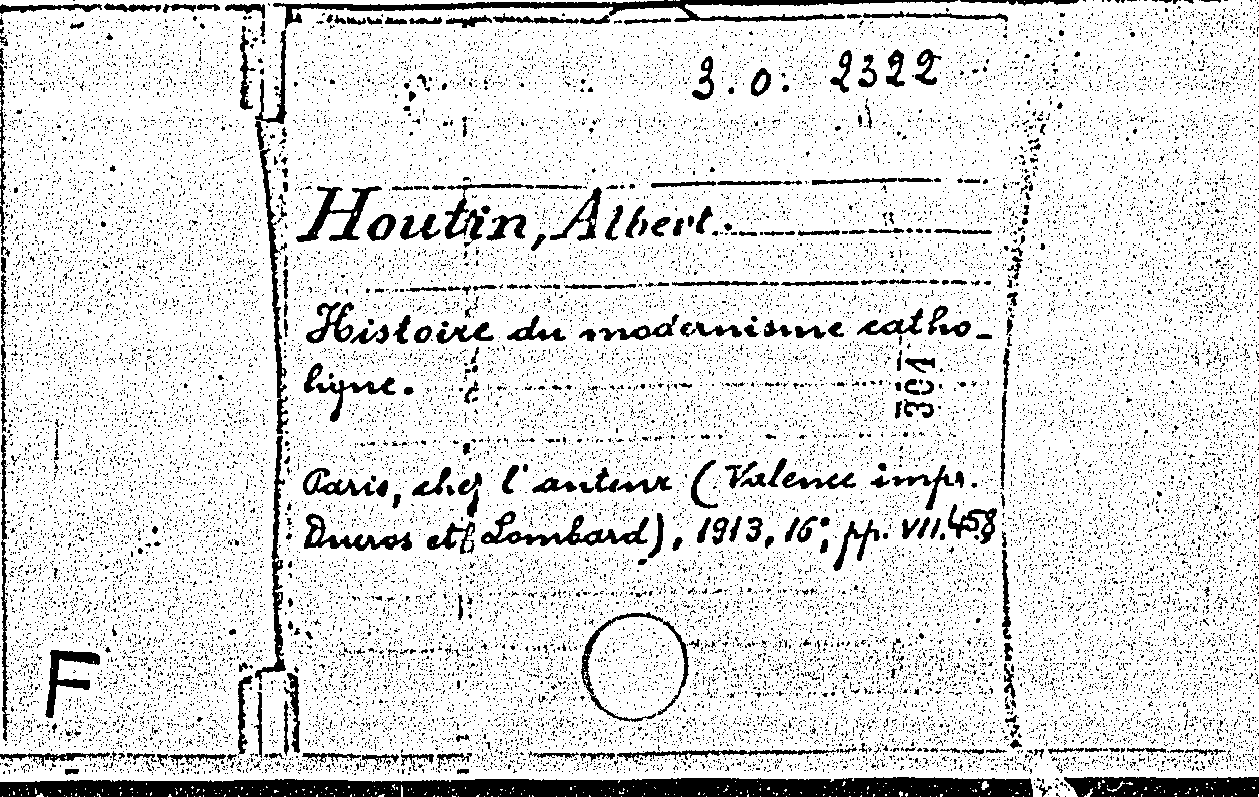 3. o. 2322
Houtin, Albert.
Histoire du modernisme catho-
lique.
301
Paris, chez l'auteur (Valence impr.
Ducros et Lombard), 1913, 16°, pp. VII.458
F